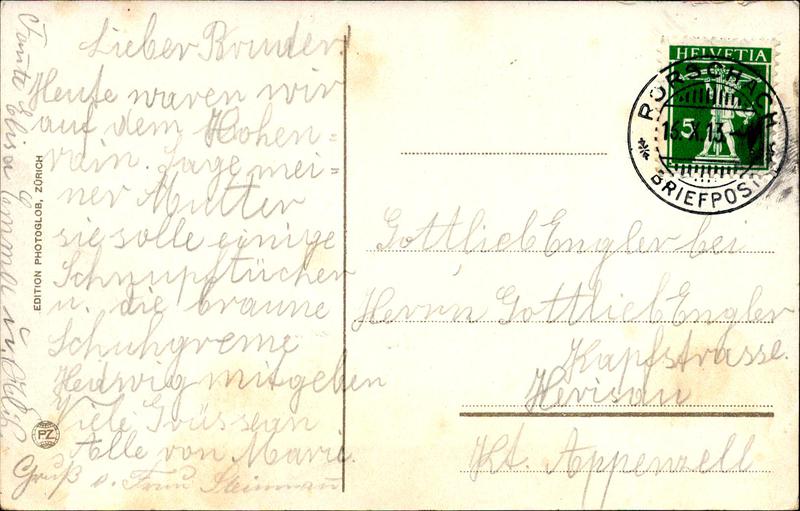 Lieber Bruder!
Heute waren wir
auf dem Hohen=
rain. Sage mei=
ner Mutter
sie solle einige
Schnupftücher
u. die braune
Schuhgreme
Hedwig mitgeben
Viele Grüsse an
Alle von Marie.
Gruß v. Frau Steinmann
Tante Elisa
EDITION PHOTOGLOB, ZÜRICH
PZ
HELVETIA
5
RORSCHACH
16.X.13
BRIEFPOST
Gottlieb Engler bei
Herrn Gottlieb Engler
Kapfstrasse.
Herisau
Kt. Appenzell